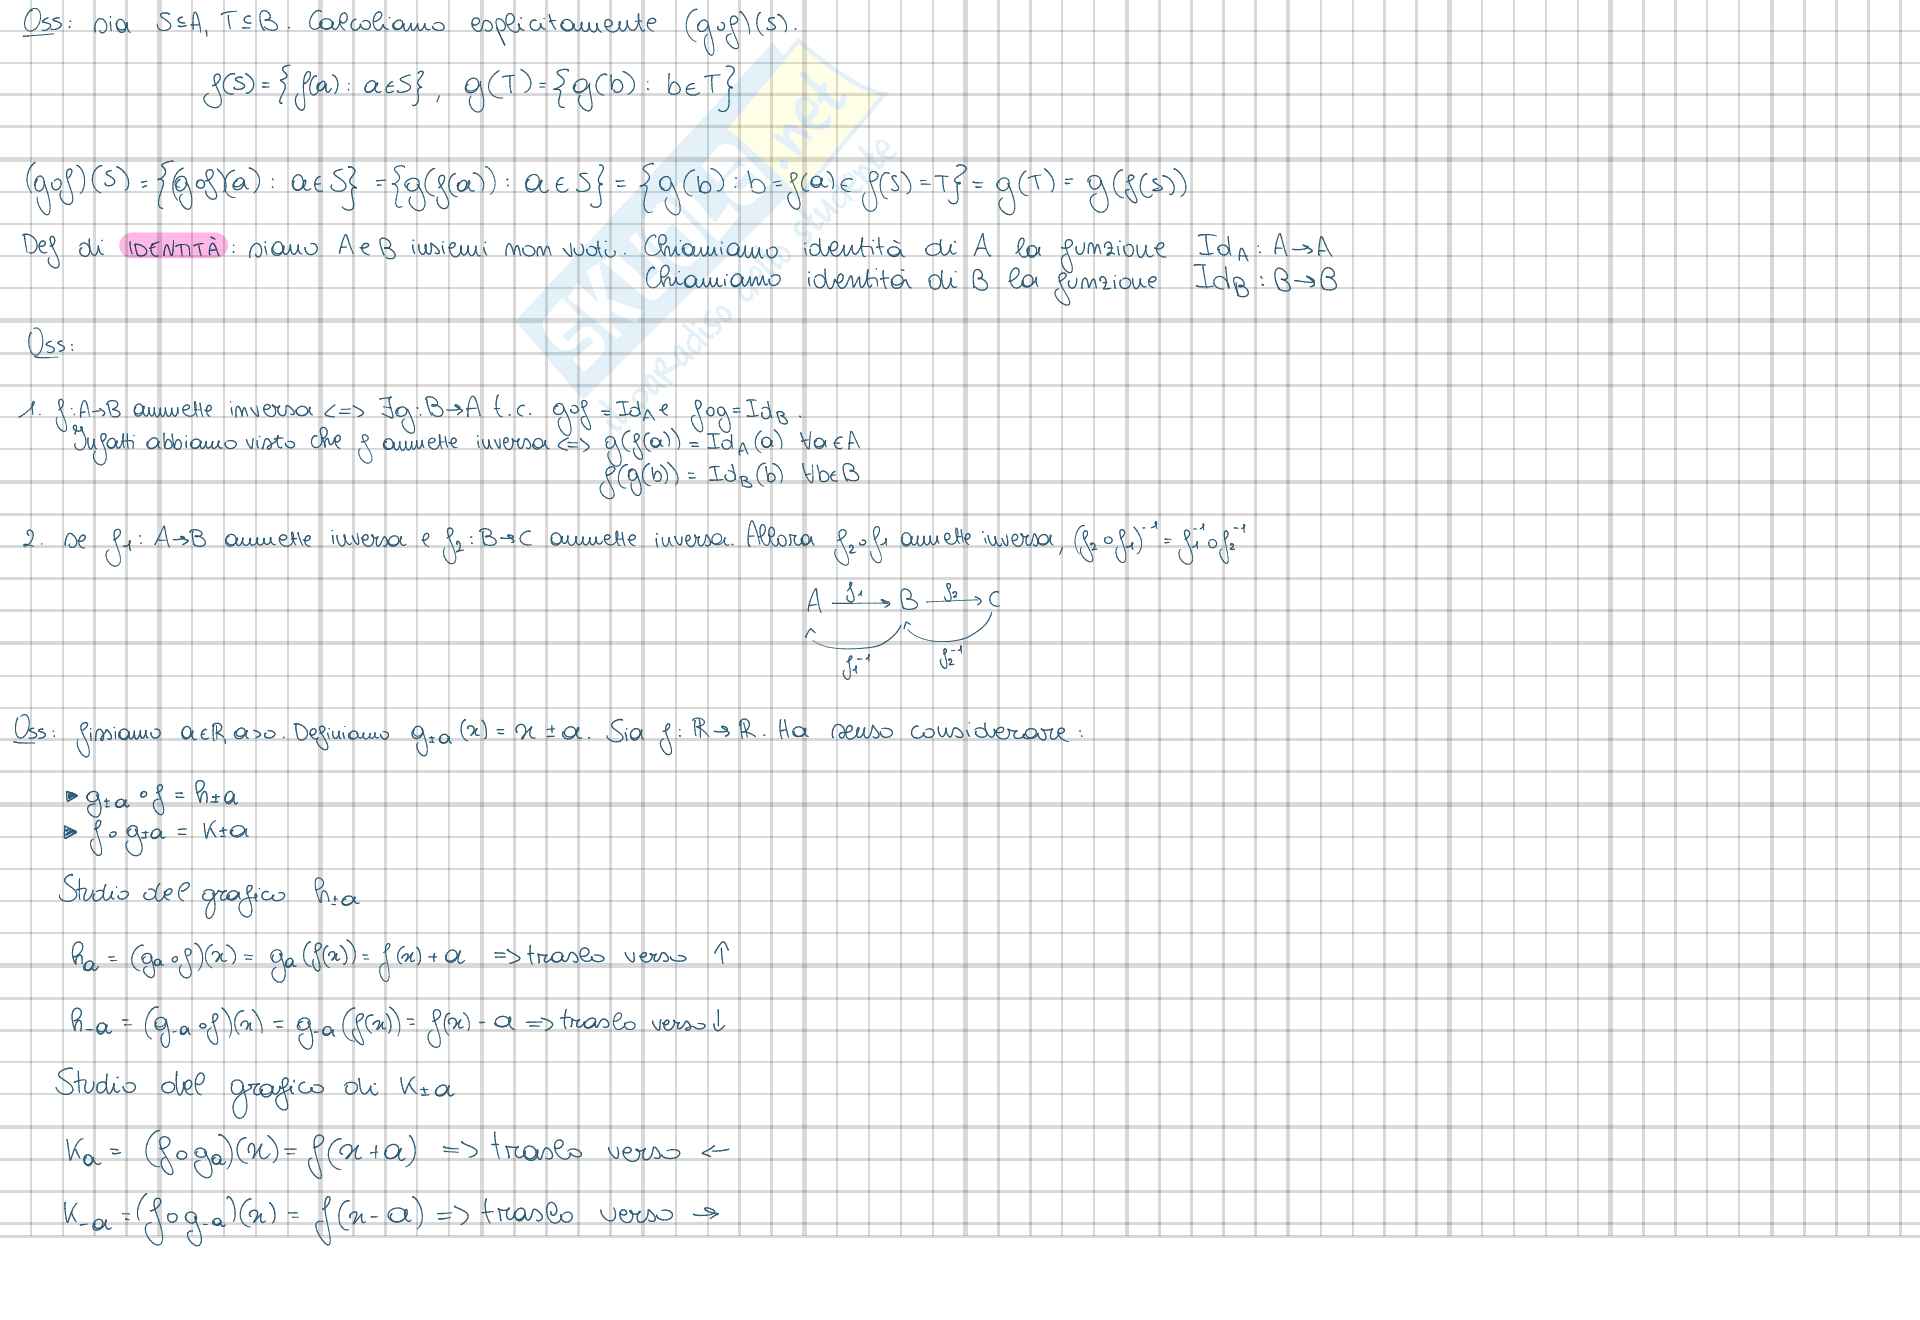 Oss: sia S⊆A, T⊆B. Calcoliamo esplicitamente (g∘f)(S).
f(S)={f(a): a∈S}, g(T)={g(b): b∈T}
(g∘f)(S)={(g∘f)(a): a∈S}={g(f(a)): a∈S}={g(b): b=f(a)∈f(S)=T}=g(T)=g(f(S))
Def di IDENTITÀ: siano A e B insiemi non vuoti. Chiamiamo identità di A la funzione Id_A: A→A
Chiamiamo identità di B la funzione Id_B: B→B
Oss:
1. f:A→B ammette inversa <=> ∃g:B→A t.c. g∘f=Id_A e f∘g=Id_B.
Infatti abbiamo visto che f ammette inversa <=> g(f(a))=Id_A(a) ∀a∈A
f(g(b))=Id_B(b) ∀b∈B
2. se f₁: A→B ammette inversa e f₂: B→C ammette inversa. Allora f₂∘f₁ ammette inversa, (f₂∘f₁)⁻¹=f₁⁻¹∘f₂⁻¹
A f₁→ B f₂→ C
f₁⁻¹ f₂⁻¹
Oss: fissiamo a∈ℝ, a>0. Definiamo g±a(x)=x±a. Sia f: ℝ→ℝ. Ha senso considerare:
▸ g±a∘f = h±a
▸ f∘g±a = K±a
Studio del grafico h±a
h_a = (g_a∘f)(x) = g_a(f(x)) = f(x)+a => traslo verso ↑
h_-a = (g_-a∘f)(x) = g_-a(f(x)) = f(x)-a => traslo verso ↓
Studio del grafico di K±a
K_a = (f∘g_a)(x) = f(x+a) => traslo verso ←
K_-a = (f∘g_-a)(x) = f(x-a) => traslo verso →
SKUOLA.net
il paradiso dello studente